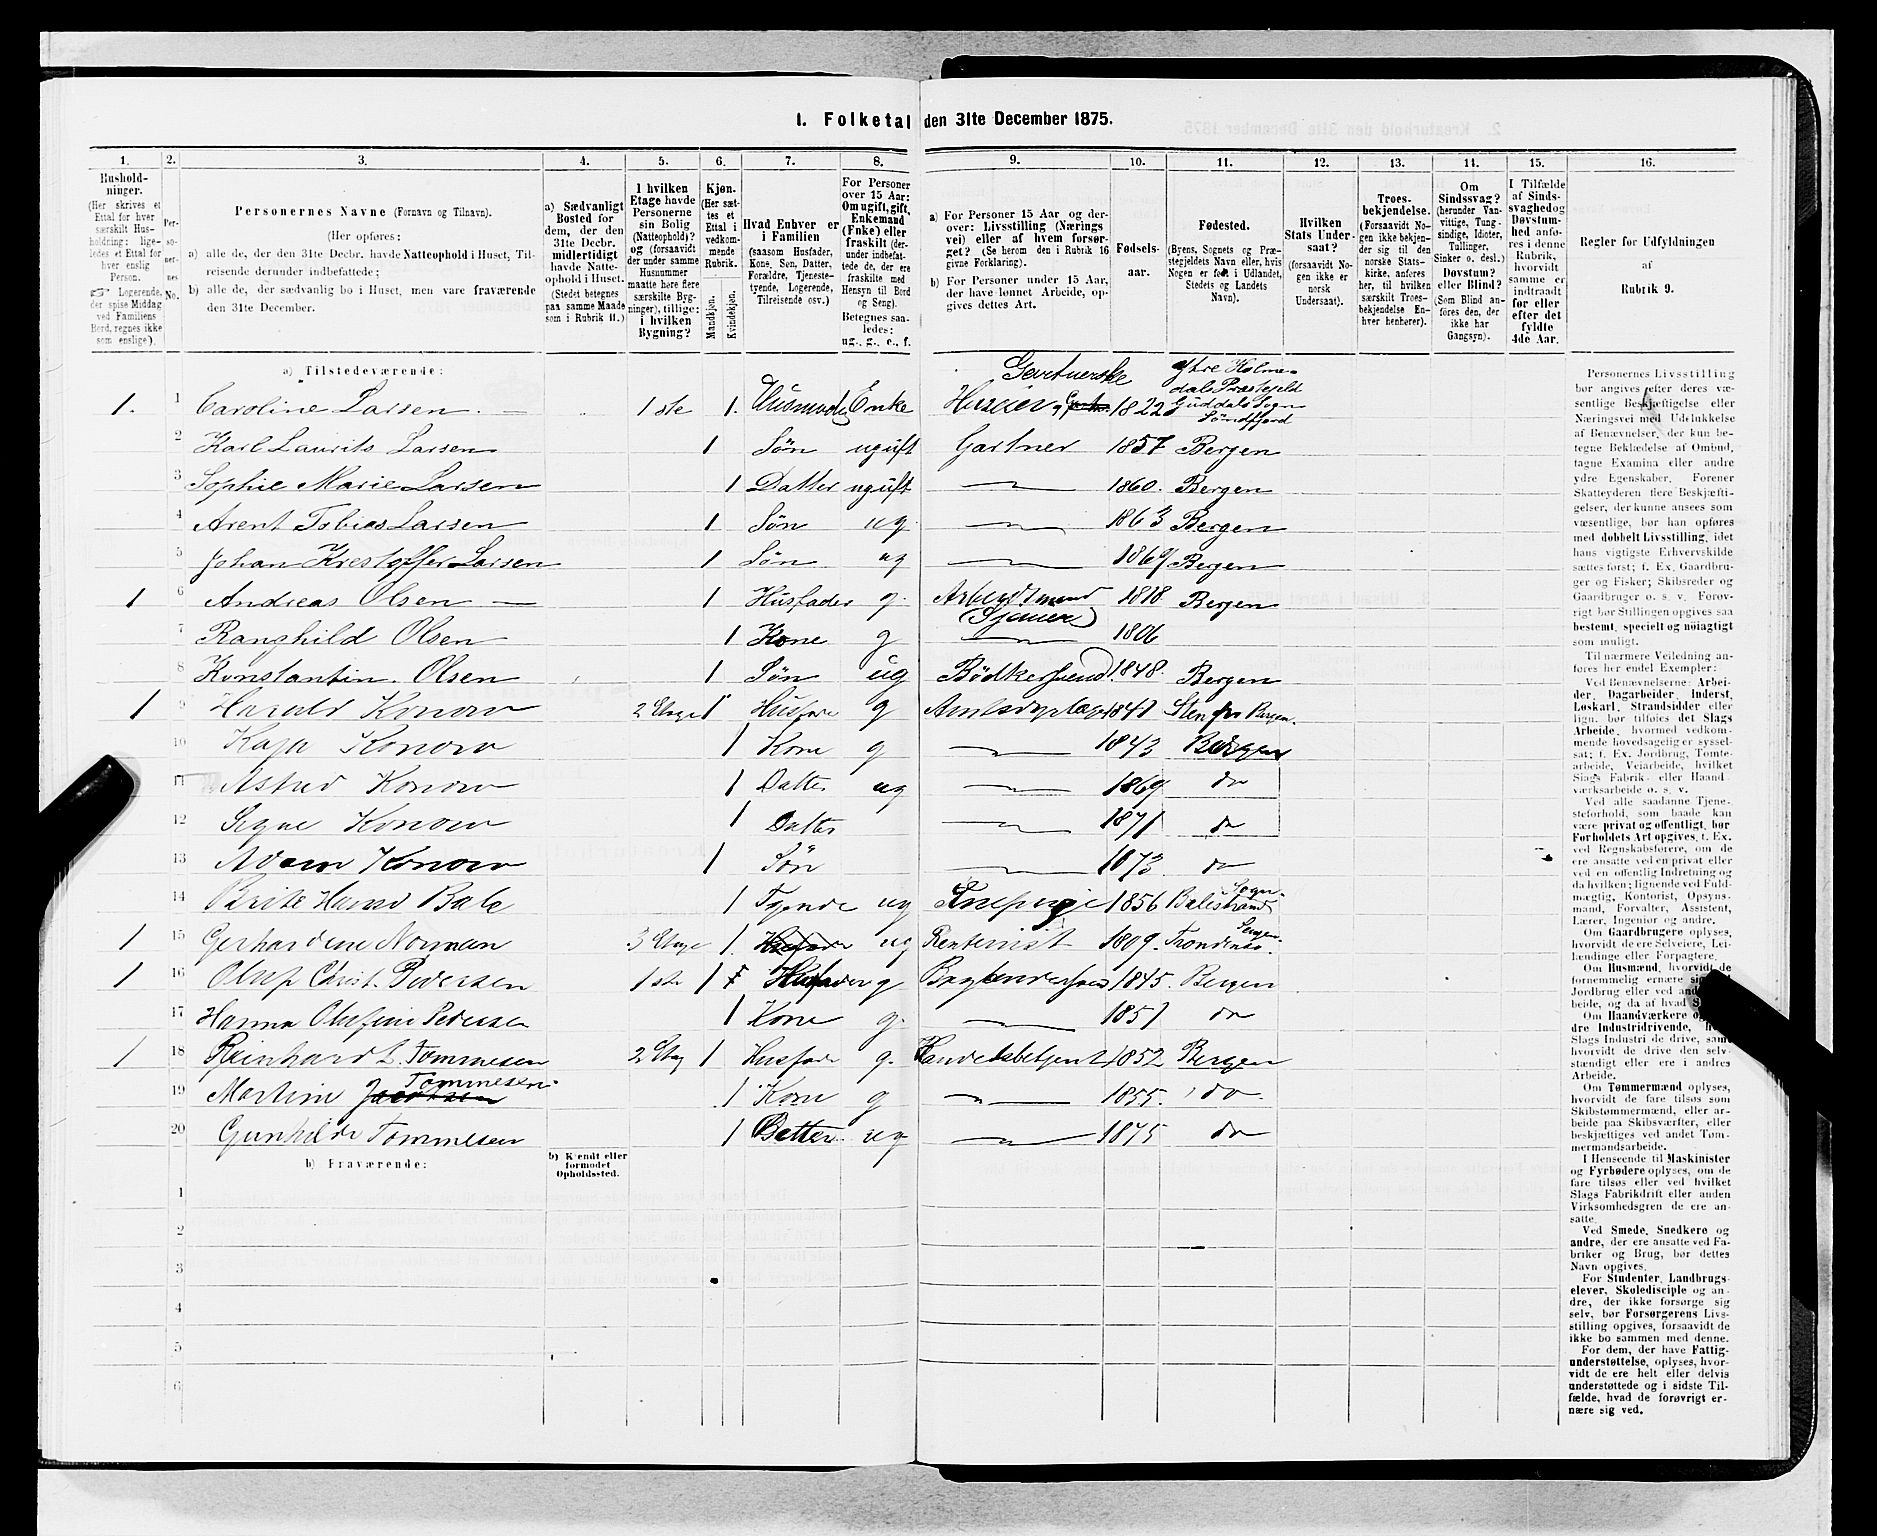 1. Folketal den 31te December 1875.
1. 2. 3. 4. 5. 6. 7. 8. 9. 10. 11. 12. 13. 14. 15. 16.
Hushold-
ninger.
(Her skrives et
Ettal for hver
særskilt Hus-
holdning: lige-
ledes et Ettal for
hver enslig
Person.
☞ Logerende,
der spise Middag
ved Familiens
Bord, regnes ikke
som enslige).
Per-
so-
ner-
nes
No.
Personernes Navne (Fornavn og Tilnavn).
(Her opføres:
a) alle de, der den 31te Decbr. havde Natteophold i Huset, Til-
reisende derunder indbefattede;
b) alle de, der sædvanlig bo i Huset, men vare fraværende
den 31te December.
a) Sædvanligt
Bosted for
dem, der den
31te Decbr.
midlertidigt
havde Natte-
ophold i Huset.
(Stedet betegnes
paa samme Maade
som i Rubrik 11.)
I hvilken
Etage havde
Personerne
sin Bolig
(Natteophold)?
og (forsaavidt
der under samme
Husnummer
maatte høre flere
særskilte Byg-
ninger), tillige:
i hvilken
Bygning?
Kjøn.
(Her sæt-
tes et
Ettal i
vedkom-
mende
Rubrik.
Mandkjøn.
Kvindekjøn.
Hvad Enhver er
i Familien
(saasom Husfader,
Kone, Søn, Datter,
Forældre, Tjeneste-
tyende, Logerende,
Tilreisende osv.)
For Personer
over 15 Aar:
Om ugift, gift,
Enkemand
(Enke) eller
fraskilt (der-
under indbefat-
tede de, der ere
fraskilte med
Hensyn til Bord
og Seng).
Betegnes saa-
ledes:
ug., g., e., f.
a) For Personer 15 Aar og der-
over: Livsstilling (Nærings
vei) eller af hvem forsør-
get? (Se herom den i Rubrik 16
givne Forklaring).
b) For Personer under 15 Aar,
der have lønnet Arbeide, op-
gives dettes Art.
Fødsels-
aar.
Fødested.
(Byens, Sognets og Præ-
stegjeldets Navn eller, hvis
Nogen er født i Udlandet,
Stedets og Landets
Navn).
Hvilken
Stats Under-
saat?
(forsaavidt No-
gen ikke er
norsk
Undersaat).
Troes-
bekjendelse.
(Forsaavidt No-
gen ikke bekjen-
der sig til den
norske Stats-
kirke, anføres
her, til hvilken
særskilt Troes-
bekjendelse En-
hver henhører).
Om
Sindssvag?
(herunder Van-
vittige, Tung-
sindige, Idioter,
Tullinger,
Sinker o. desl.)
Døvstum?
eller Blind?
(Som Blind an-
føres den, der
ikke har
Gangsyn).
I Tilfælde
af Sinds-
svaghed og
Døvstum-
hed anfø-
res i denne
Rubrik,
hvorvidt
samme er
indtraadt
før eller
efter det
fyldte
4de Aar.
Regler for Udfyldningen
af
Rubrik 9.
a) Tilstedeværende:
1. 1 Caroline Larsen 1ste 1. Enke Gartnerske 1822 Ytre Holme-
dals Præstegjeld
Guddals Sogn
Søndfjord
2 Karl Laurits Larsen 1 Søn ugift Gartner 1857 Bergen
3 Sophie Marie Larsen 1 Datter ugift 1860. Bergen
4 Arent Tobias Larsen 1 Søn ug. 1863 Bergen
5 Johan Krestoffer Larsen 1 Søn ug 1869 Bergen
1 6 Andreas Olsen 1 Husfader g. Arbeidsmand 1818 Bergen
7 Ranghild Olsen 1 Kone g 1806
8 Konstantin. Olsen 1 Søn ug Bødkersvend 1848. Bergen
1 9 Harald Konow 2 Etage 1 Husfade g 1841 Sten Bergen.
10 Kaja Konow 1 Kone g 1843 Bergen
11 Astrid Konow 1 Datter ug 1869 do
12 Signe Konow 1 Datter 1871 do
13 Adam Konow 1 Søn 1873 do
14 Brite Hansd Bale 1 Tyende ug 1856 Balestrand Sogn.
1 15 Gerhardine Norman 3 Etage 1. ug Rentenist 1809. Trondenæs.
1 16 Oluf Christ. Pedersen 1ste 1 Husfader g 1845. Bergen
17 Hanna Olufine Pedersen 1 Kone g. 1851 do
1 18 Reinhardt Tommesen 2 Etag 1 Husfade g. Handelsbetjent 1852 Bergen
19 Martine Tommesen 1 Kone g 1855. do.
20 Gunhilde Tommesen 1 Datter ug 1875 do
b) Fraværende:
b) Kjendt eller
formodet
Opholdssted.
1
2
3
4
5
6
Personernes Livsstilling
bør angives efter deres væ-
sentlige Beskjæftigelse eller
Næringsvei med Udelukkelse
af Benævnelser, der kun be-
tegne Beklædelse af Ombud,
tagne Examina eller andre
ydre Egenskaber. Forener
Skatteyderen flere Beskjæfti-
gelser, der kunne ansees som
væsentlige, bør han opføres
med dobbelt Livsstilling, idet
hans vigtigste Erhvervskilde
sættes først; f. Ex. Gaardbru-
ger og Fisker; Skibsreder og
Gaardbruger o. s. v. Forøv-
rigt bør Stillingen opgives saa
bestemt, specielt og nøiagtigt
som muligt.
Til nærmere Veiledning an-
føres her endel Exempler:
Ved Benævnelserne: Arbei-
der, Dagarbeider, Inderst,
Løskarl, Strandsidder eller
lign. bør tilføies det Slags
Arbeide, hvormed vedkom-
mende hovedsagelig er syssel-
sat; f. Ex. Jordbrug, Tomte-
arbeide, Veiarbeide, hvilket
Slags Fabrik- eller Haand-
værksarbeide o. s. v.
Ved alle saadanne Tjene-
steforhold, som baade kan
være privat og offentligt, bør
Forholdets Art opgives, f. Ex.
ved Regnskabsførere, om de
ere ansatte ved en privat eller
ved en offentlig Indretning og
da hvilken; lignende ved Fuld-
mægtig, Kontorist, Opsyns-
mand, Forvalter, Assistent,
Lærer, Ingeniør og andre.
Om Gaardbrugere oplyses,
hvorvidt de ere Selveiere, Lei-
lændinge eller Forpagtere.
Om Husmænd, hvorvidt de
fornemmelig ernære sig
Jordbrug eller ved
beide, og da af hvad
Om Haandværkere
dre Industridrivende,
Slags Industri de drive, samt
hvorvidt de drive den selv-
stændigt eller ere i andres
Arbeide.
Om Tømmermænd oplyses,
hvorvidt de fare tilsøs som
Skibstømmermænd, eller ar-
beide paa Skibsværfter, eller
beskjæftiges ved andet Tøm-
mermandsarbeide.
I Henseende til Maskinister
og Fyrbødere oplyses, om de
fare tilsøs eller ved hvilket
Slags Fabrikdrift eller anden
Virksomhedsgren de ere an-
satte.
Ved Smede, Snedkere og
andre, der ere ansatte ved Fa-
briker og Brug, bør dettes
Navn opgives.
For Studenter, Landbrugs-
elever, Skoledisciple og an-
dre, der ikke forsørge sig
selv, bør Forsørgerens Livs-
stilling opgives, forsaavidt de
ikke bo sammen med denne.
For dem, der have Fattig-
understøttelse, oplyses, hvor-
vidt de ere helt eller delvis
understøttede og i sidste Til-
fælde, hvad de forøvrigt er-
nære sig ved.